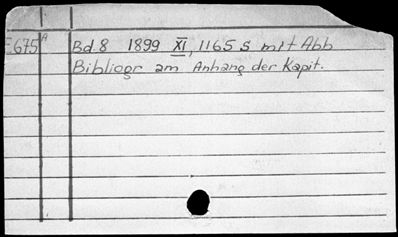 E675A Bd.8 1899 XI, 1165 S mit Abb
Bibliogr am Anhang der Kapit.